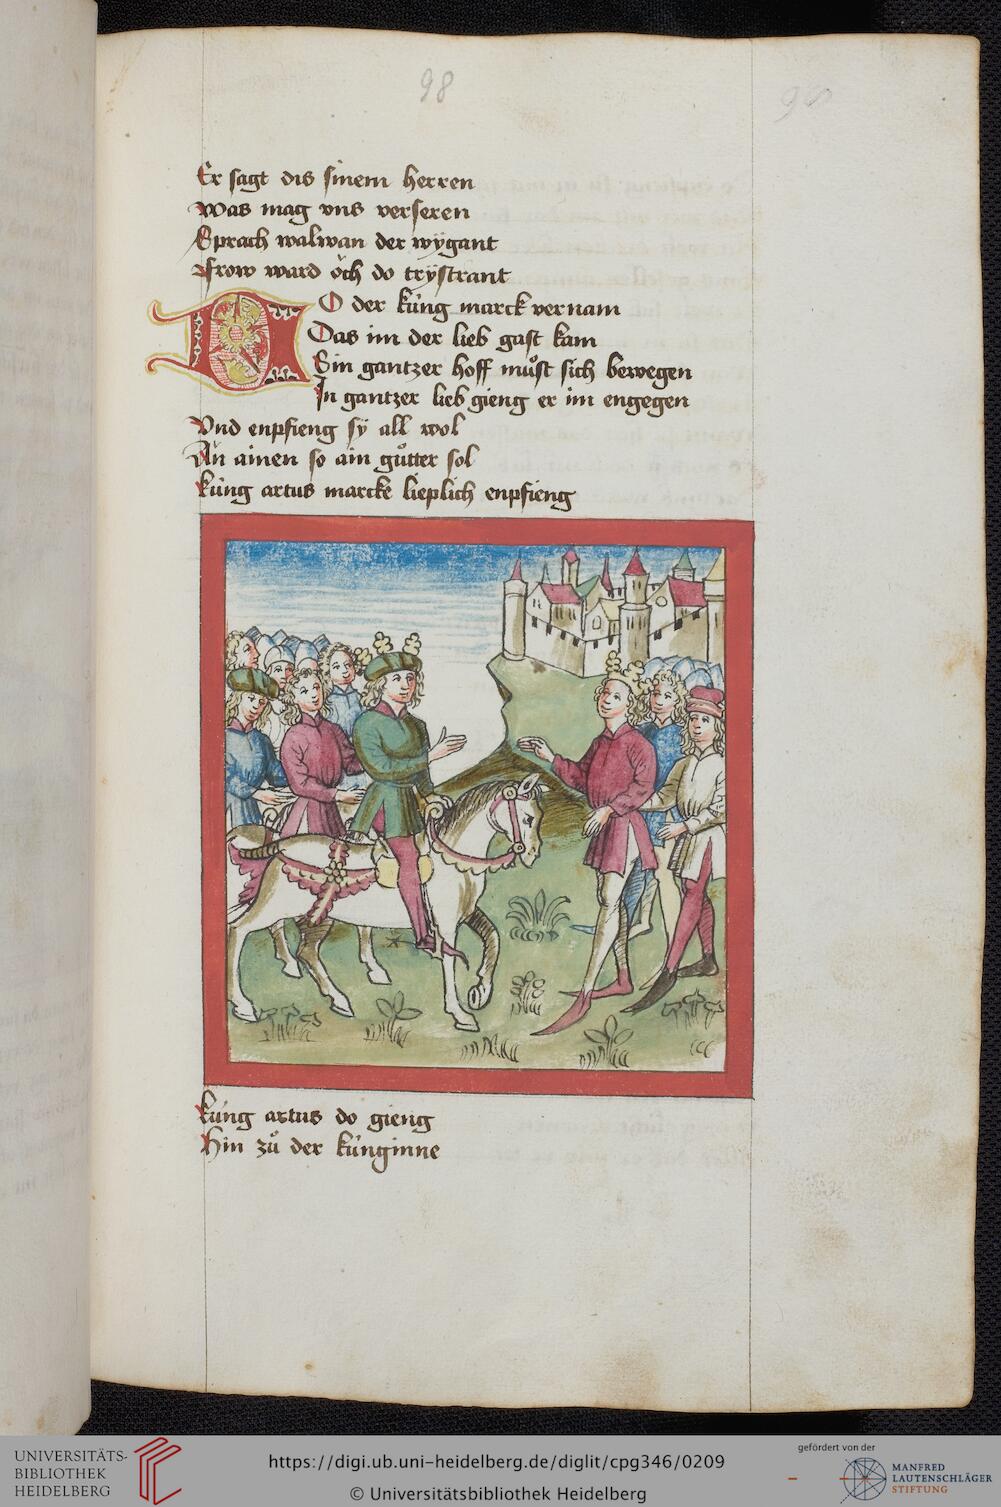 98
98
Er sagt dis sinem herren
Was mag vns verseren
Sprach walwan der wÿgant
Frow ward öch do trÿstrant
DO der kúng marck vernam
Das im der lieb gast kam
Sin gantzer hoff muͦst sich bewegen
In gantzer lieb gieng er im engegen
Vnd enpfieng sÿ all wol
An ainen so ain guͦtter sol
kúng artus marcke lieplich enpfieng
kúng artus do gieng
Hin zuͦ der kúnginne
UNIVERSITÄTS-
BIBLIOTHEK
HEIDELBERG
https://digi.ub.uni-heidelberg.de/diglit/cpg346/0209
© Universitätsbibliothek Heidelberg
gefördert von der
MANFRED
LAUTENSCHLÄGER
STIFTUNG